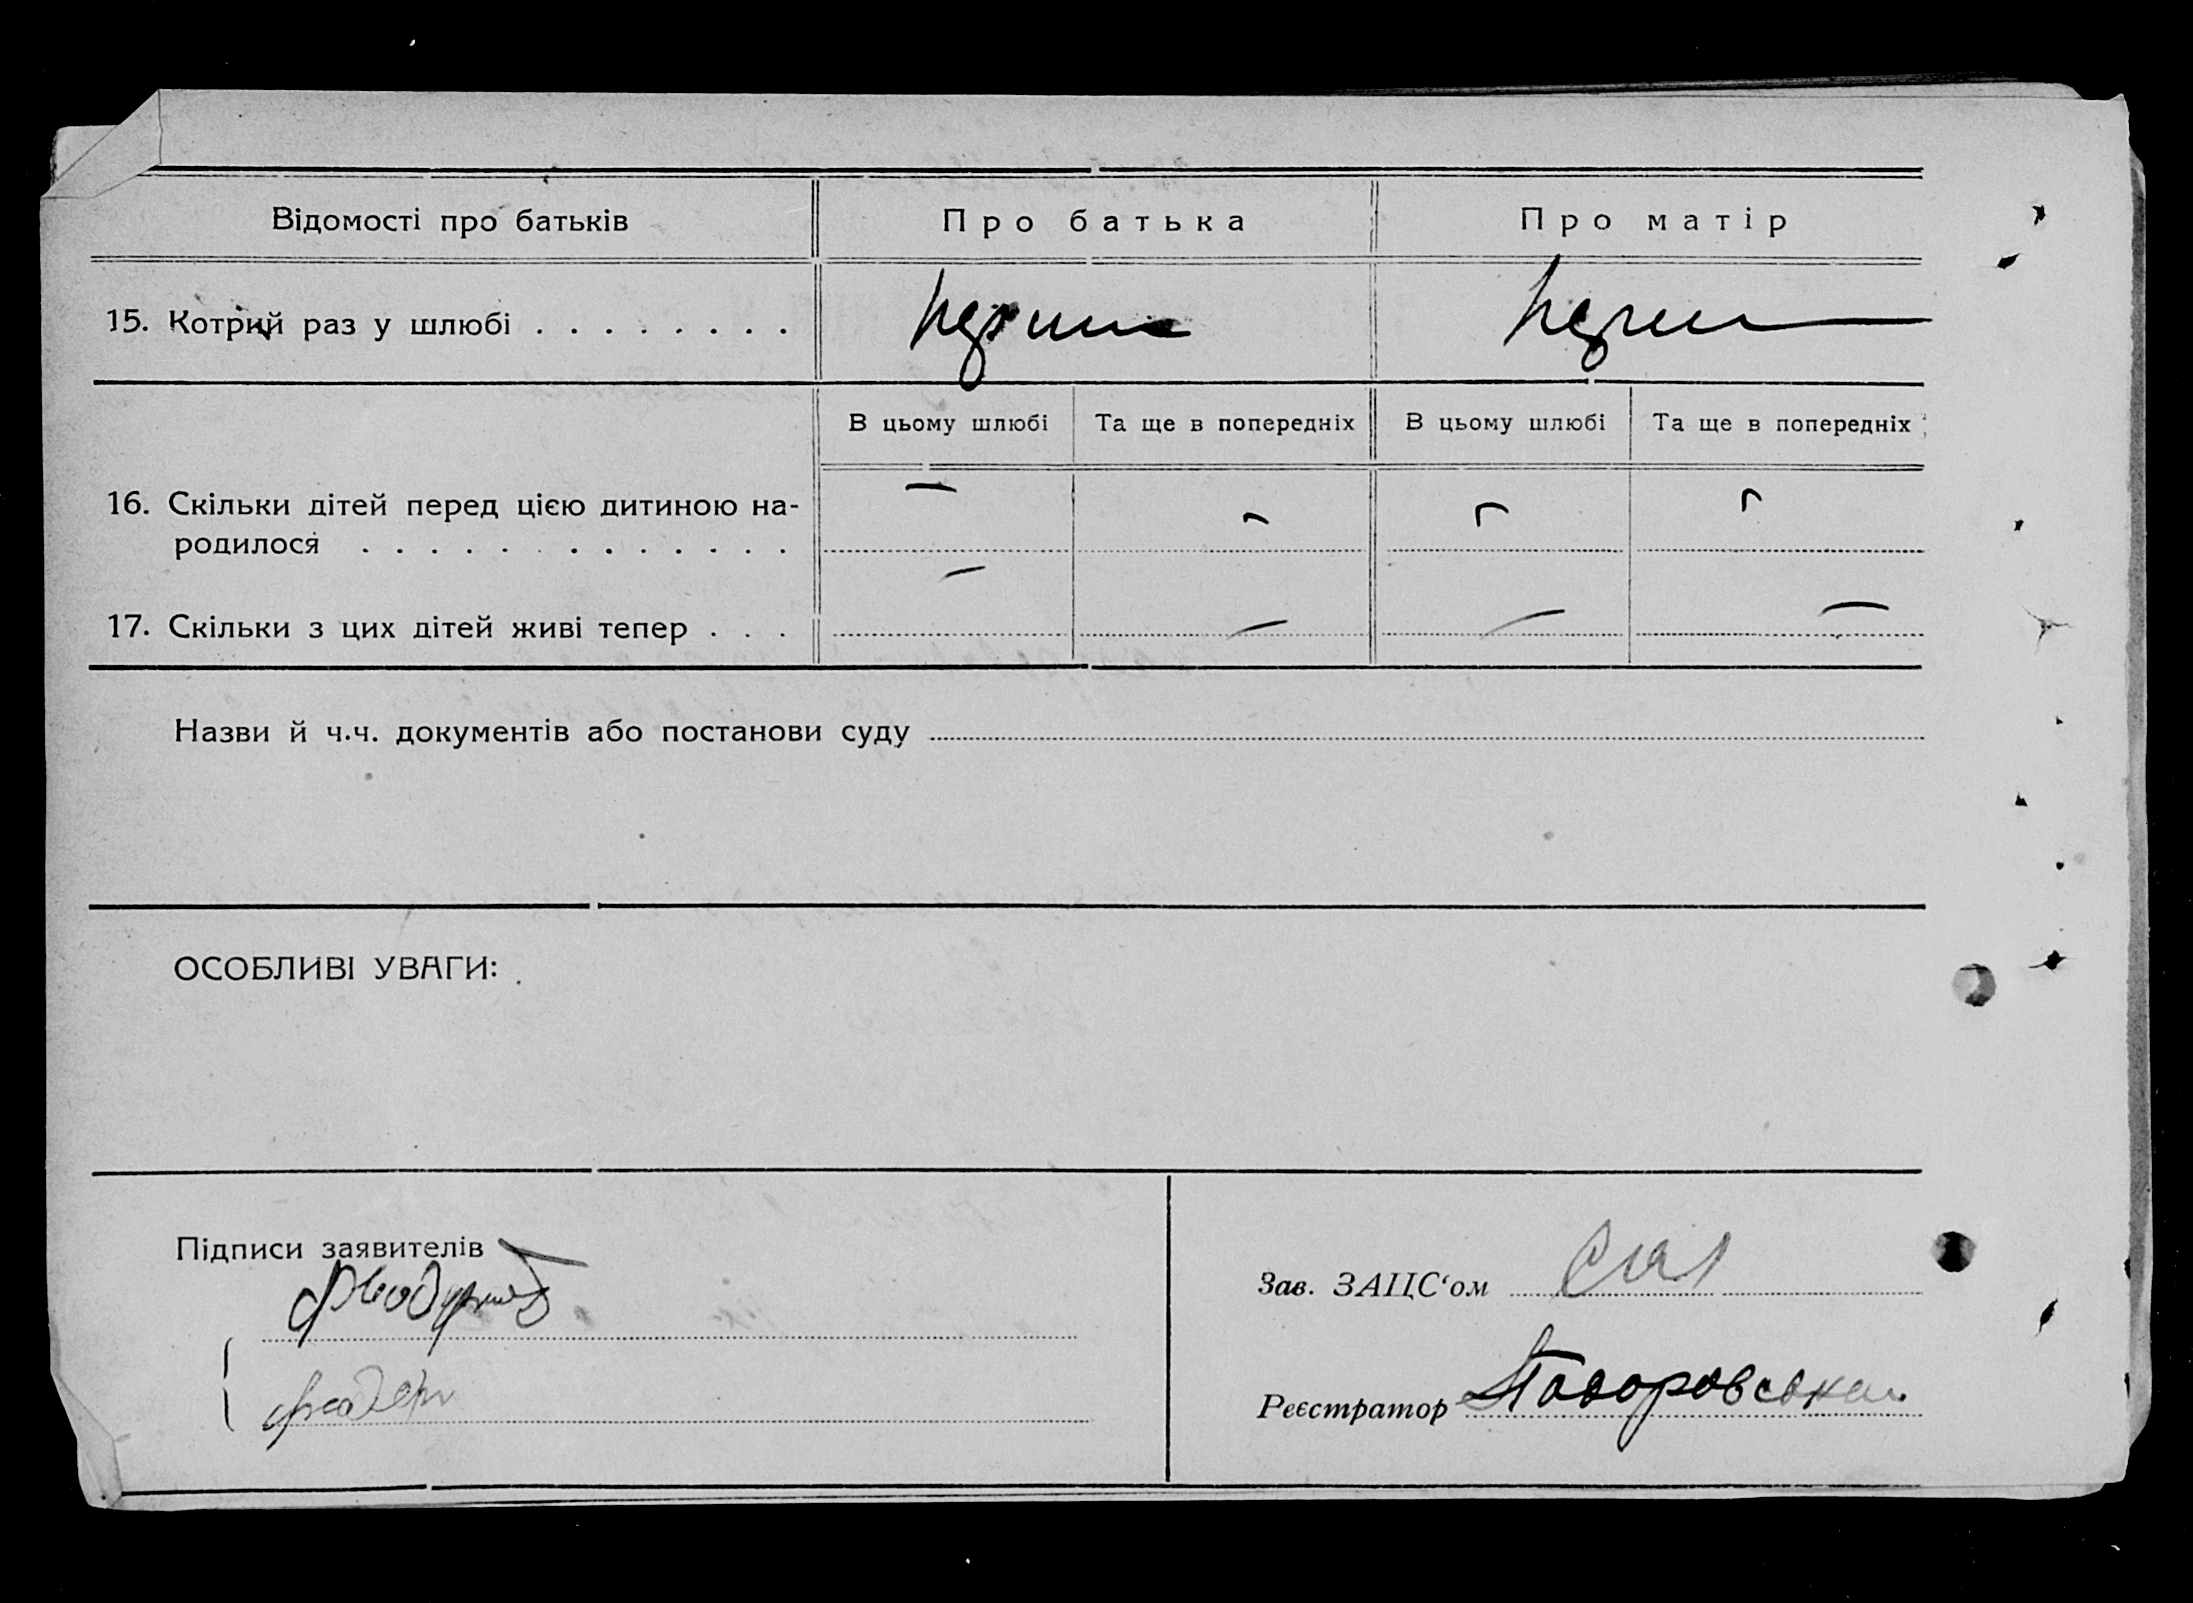 Відомості про батьків Про батька Про матір
15. Котрий раз у шлюбі . . . . . . . .
В цьому шлюбі Та ще в попередніх В цьому шлюбі Та ще в попередніх
16. Скільки дітей перед цією дитиною на-
родилося . . . . . . . . . . . . .
17. Скільки з цих дітей живі тепер . . .
Назви й ч.ч. документів або постанови суду
ОСОБЛИВІ УВАГИ:
Підписи заявителів
Зав. ЗАЦС‘ом
Реєстратор